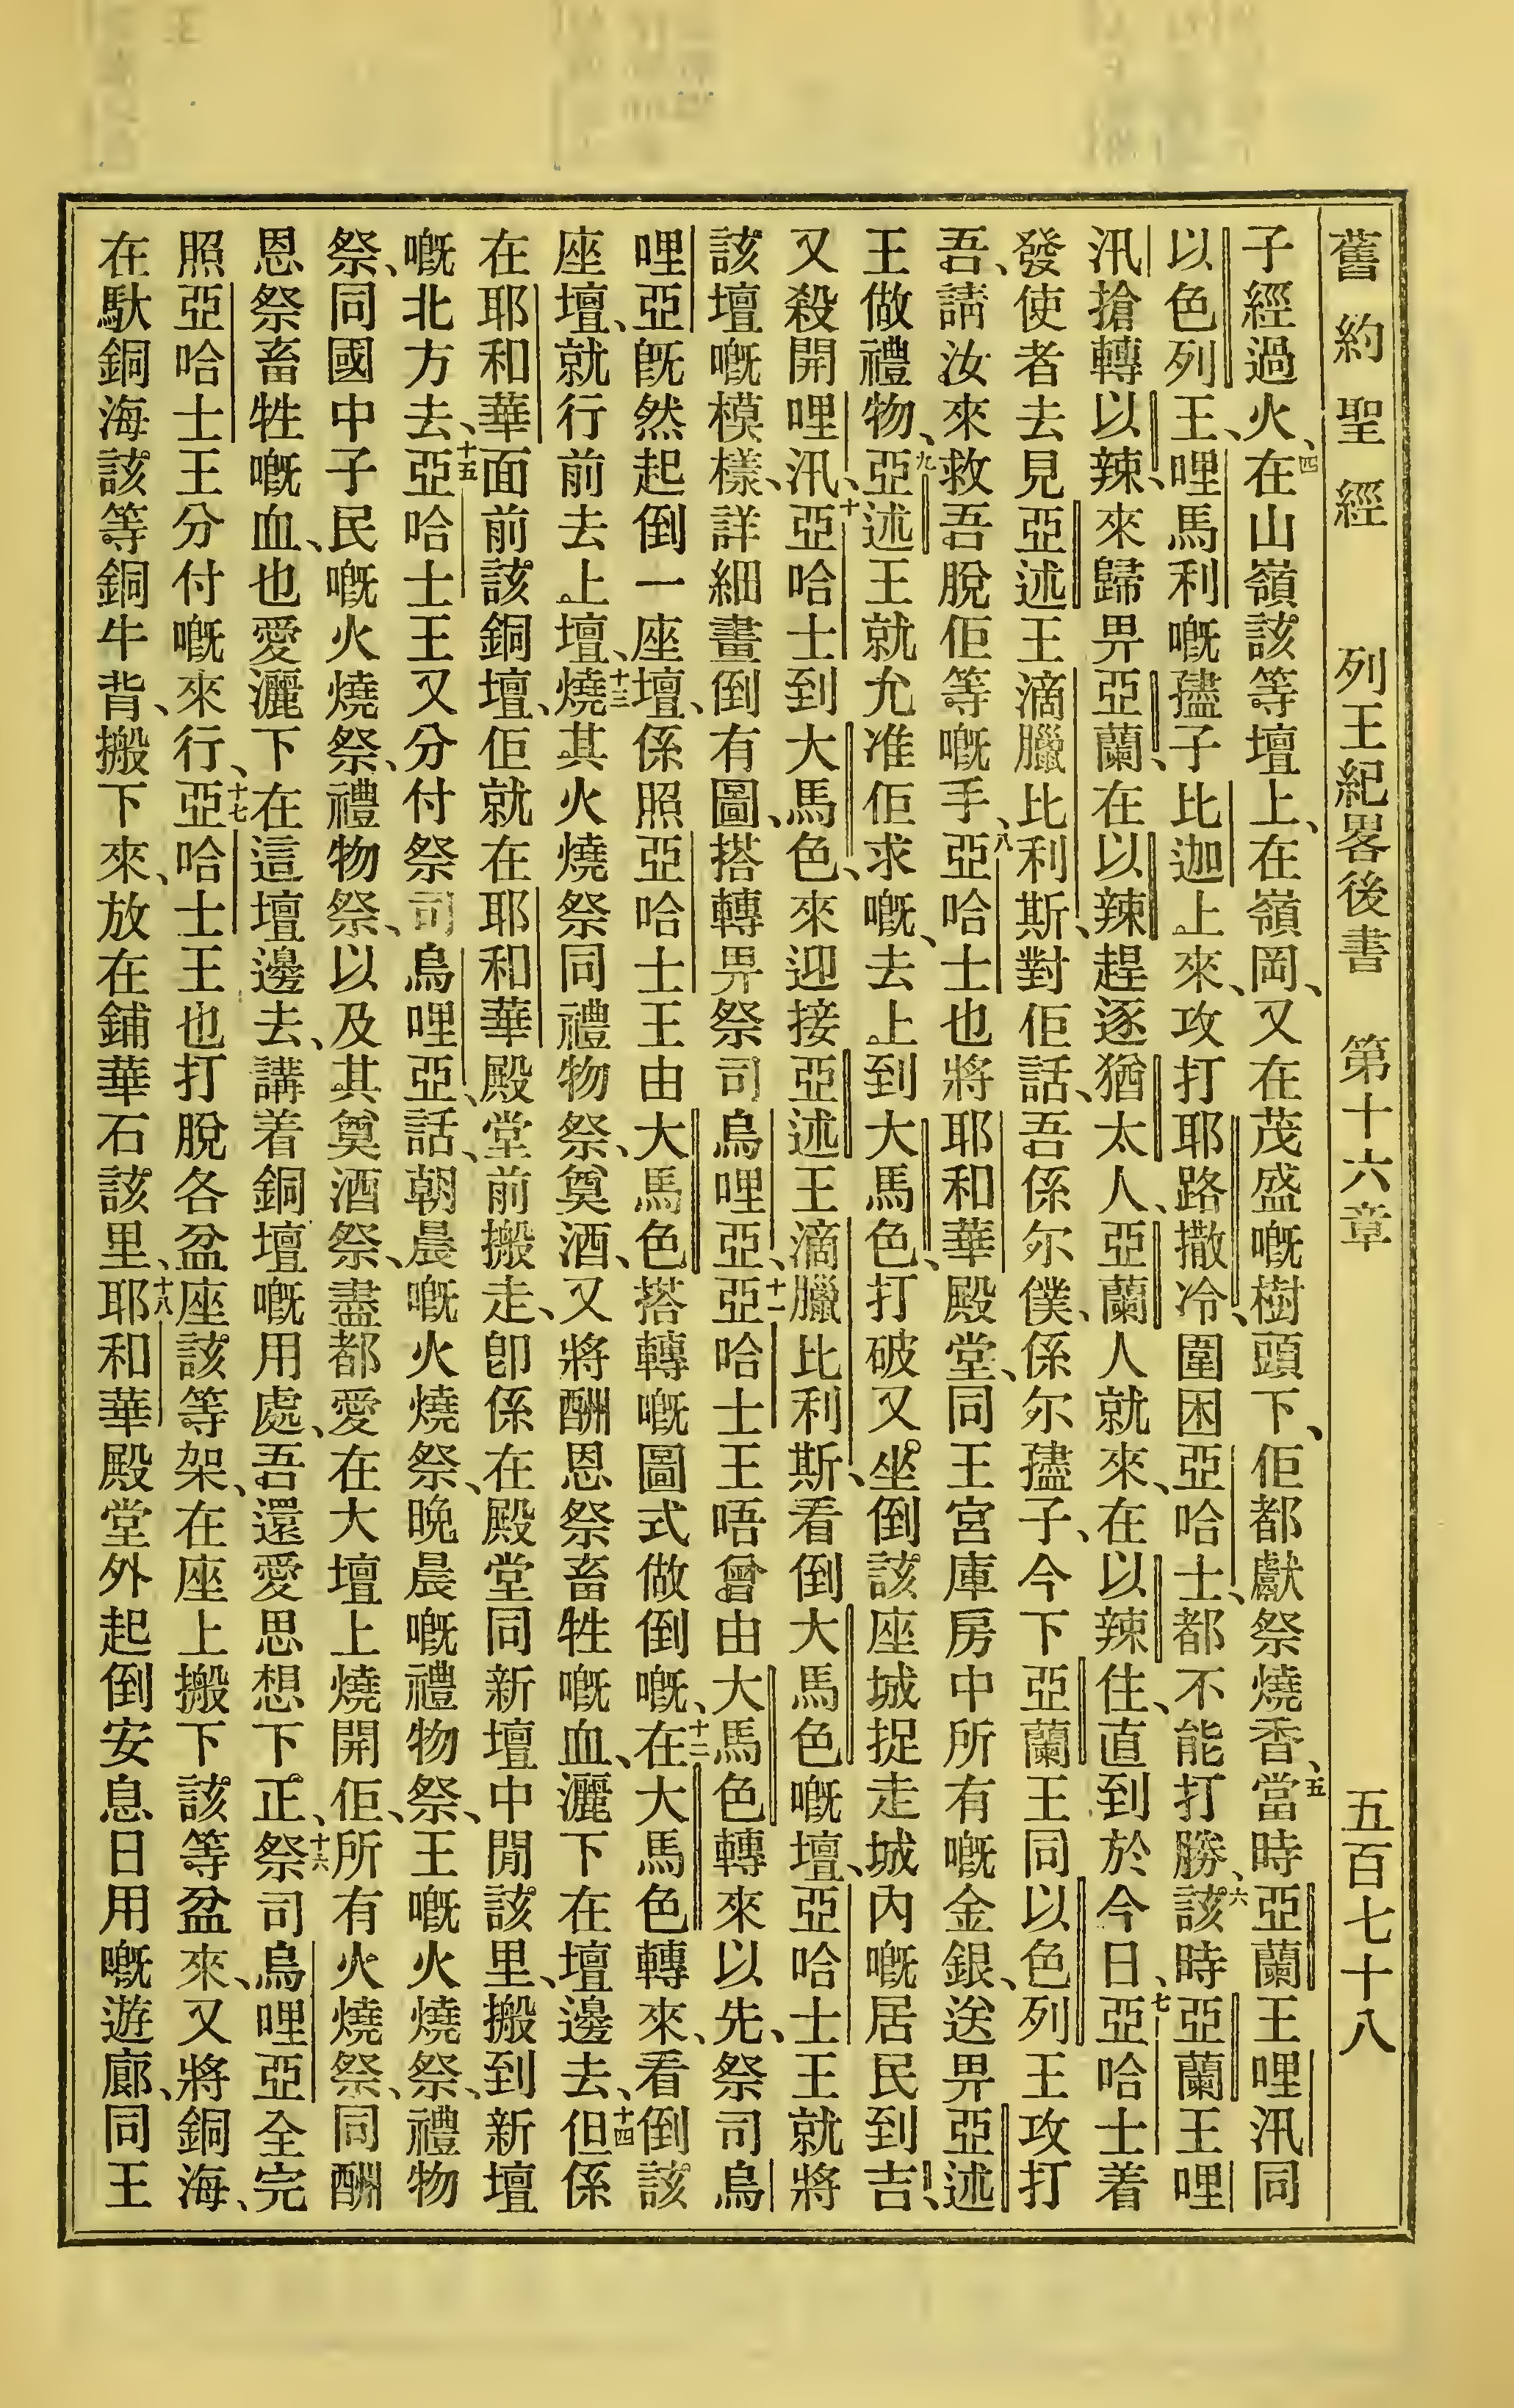 舊約聖經 列王紀畧後書 第十六章 五百七十八
子經過火、四在山嶺該等壇上、在嶺岡、又在茂盛嘅樹頭下、佢都獻祭燒香、五當時亞蘭王哩汛同
以色列王、哩馬利嘅𡥧子比迦上來、攻打耶路撒冷、圍困亞哈士、都不能打勝、六該時亞蘭王哩
汛搶轉以辣、來歸畀亞蘭、在以辣趕逐猶太人、亞蘭人就來、在以辣住、直到於今日、七亞哈士着
發使者去見亞述王滴臘比利斯、對佢話、吾係尔僕、係尔𡥧子、今下亞蘭王同以色列王攻打
吾、請汝來救吾脫佢等嘅手、八亞哈士也將耶和華殿堂、同王宮庫房中所有嘅金銀、送畀亞述
王做禮物、九亞述王就允准佢求嘅、去上到大馬色、打破又坐倒該座城捉走城內嘅居民到吉、
又殺開哩汛、十亞哈士到大馬色、來迎接亞述王滴臘比利斯、看倒大馬色嘅壇、亞哈士王就將
該壇嘅模樣、詳細畫倒有圖、搭轉畀祭司烏哩亞、十一亞哈士王唔曾由大馬色轉來以先、祭司烏
哩亞、既然起倒一座壇、係照亞哈士王由大馬色搭轉嘅圖式做倒嘅、十二在大馬色轉來、看倒該
座壇、就行前去上壇、十三燒其火燒祭同禮物祭、奠酒、又將酬恩祭畜牲嘅血、灑下在壇邊去、十四但係
在耶和華面前該銅壇、佢就在耶和華殿堂前搬走、卽係在殿堂同新壇中閒該里、搬到新壇
嘅北方去、十五亞哈士王又分付祭司烏哩亞、話、朝晨嘅火燒祭、晚晨嘅禮物祭、王嘅火燒祭、禮物
祭、同國中子民嘅火燒祭、禮物祭、以及其奠酒祭、盡都愛在大壇上燒開佢、所有火燒祭、同酬
恩祭畜牲嘅血、也愛灑下在這壇邊去、講着銅壇嘅用處、吾還愛思想下正、十六祭司烏哩亞全完
照亞哈士王分付嘅來行、十七亞哈士王也打脫各盆座該等架、在座上搬下該等盆來、又將銅海、
在馱銅海該等銅牛背、搬下來、放在鋪華石該里、十八耶和華殿堂外起倒安息日用嘅遊廊、同王